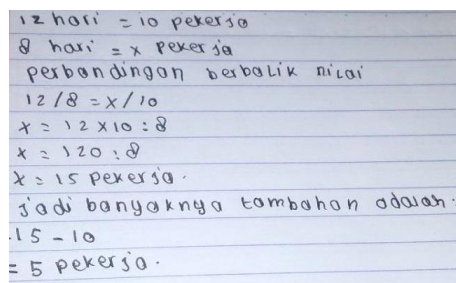 12 hari = 10 pekerja
8 hari = x pekerja
perbandingan berbalik nilai
12/8 = x/10
x = 12 x 10 : 8
x = 120 : 8
x = 15 pekerja.
jadi banyaknya tambahan adalah :
15 - 10
= 5 pekerja.